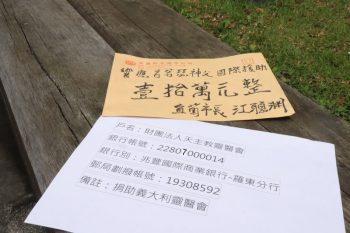 響應呂若瑟神父國際援助
壹拾萬元整
宜蘭市長 江聰淵
戶名：財團法人天主教靈醫會
銀行帳號：22807000014
銀行別：兆豐國際商業銀行-羅東分行
郵局劃撥帳號：19308592
備註：捐助義大利靈醫會